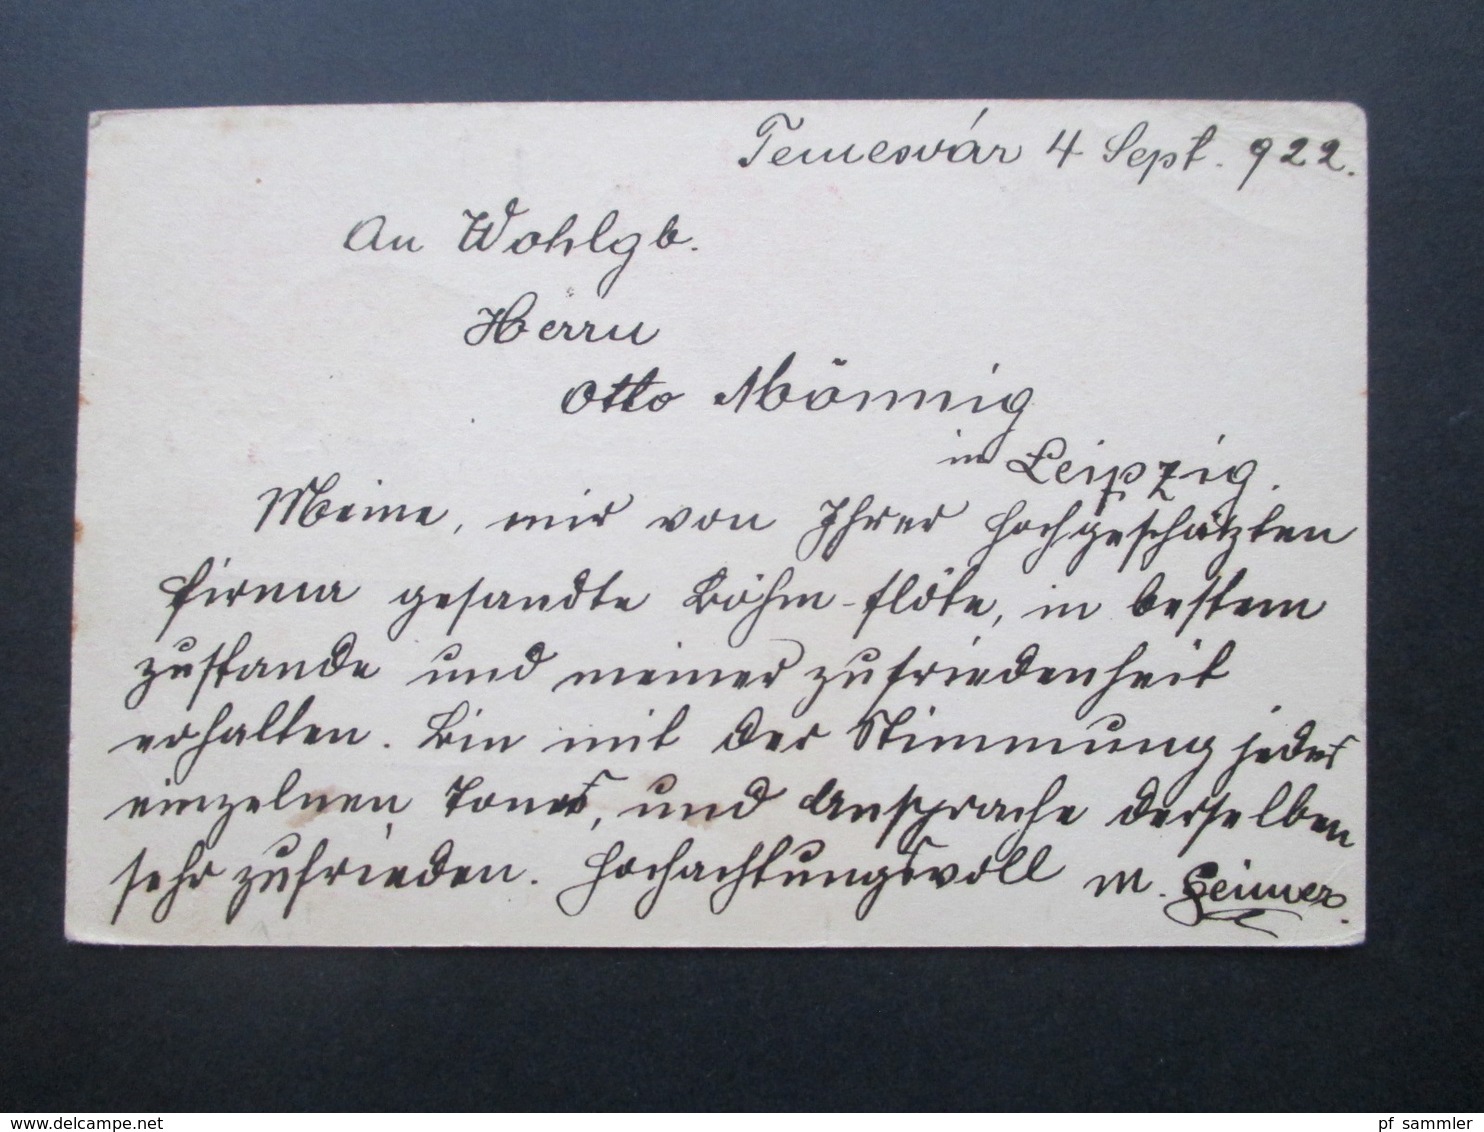 Temesvár 4 Sept. 922.
An Wohlgb.
Herrn
Otto Mönnig
in Leipzig.
Meine, mir von Ihrer hochgeschätzten
Firma gesandte Böhm-flöte, in bestem
zustande und meiner zufriedenheit
erhalten. Bin mit der Stimmung jedes
einzelnen Tones, und Ansprache derselben
sehr zufrieden. Hochachtungsvoll M.
© Delcampe.net
pf_sammler